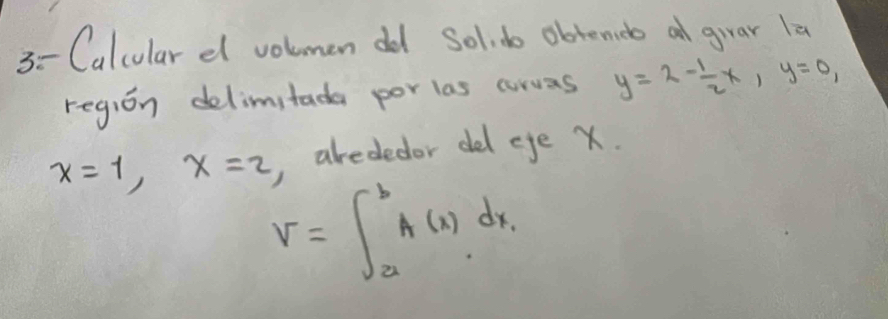 3.- Calcular el volumen del Solido Obtenido al girar la
región delimitada por las curvas y = 2 - 1/2 x, y = 0,
x = 1, x = 2, alrededor del eje X.
V = ∫_a^b A(x) dx.